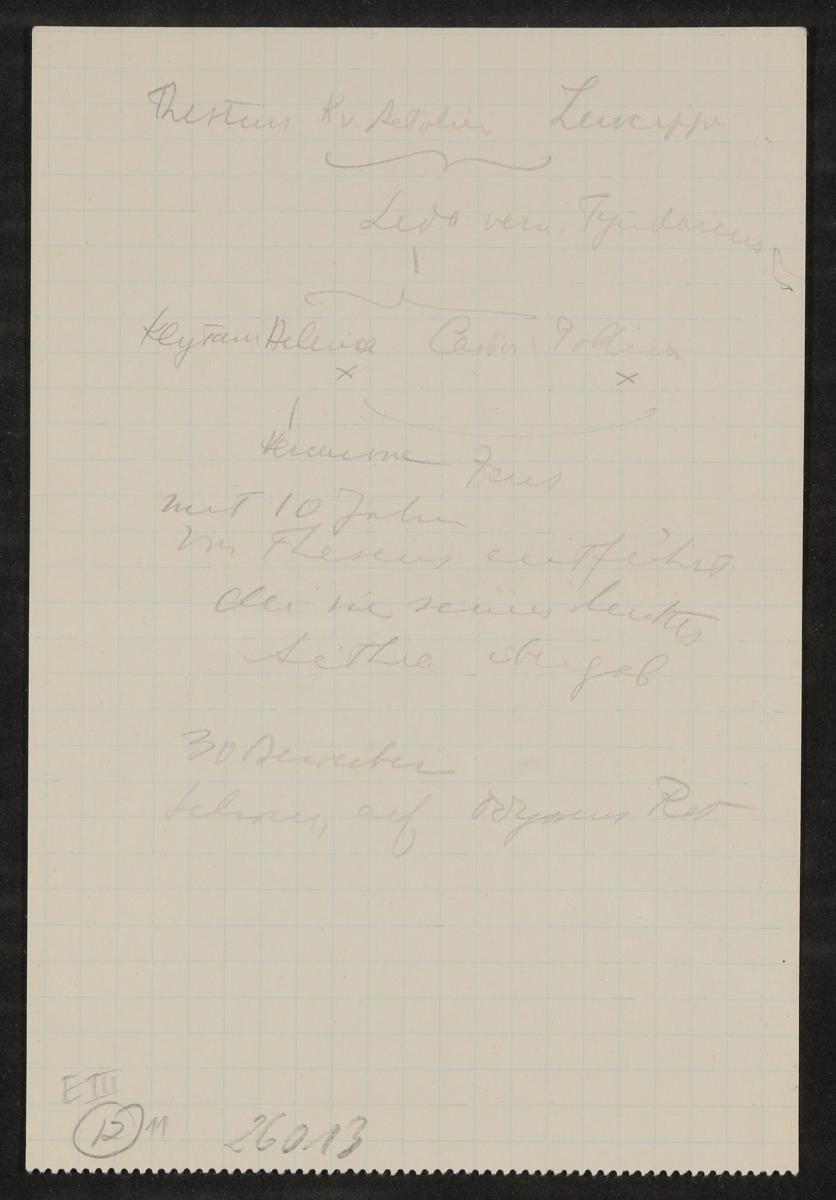 Thestius K v Aetolien Leucippe
Leda verm. Tyndareus
Klytäm Helena Castor Pollux
x x
Hermione Zeus
mit 10 Jahren
von Theseus entführt
der sie seiner
Aethra übergab
30 Bewerber
schwur, auf Odysseus Rat
E III
12 11
26013